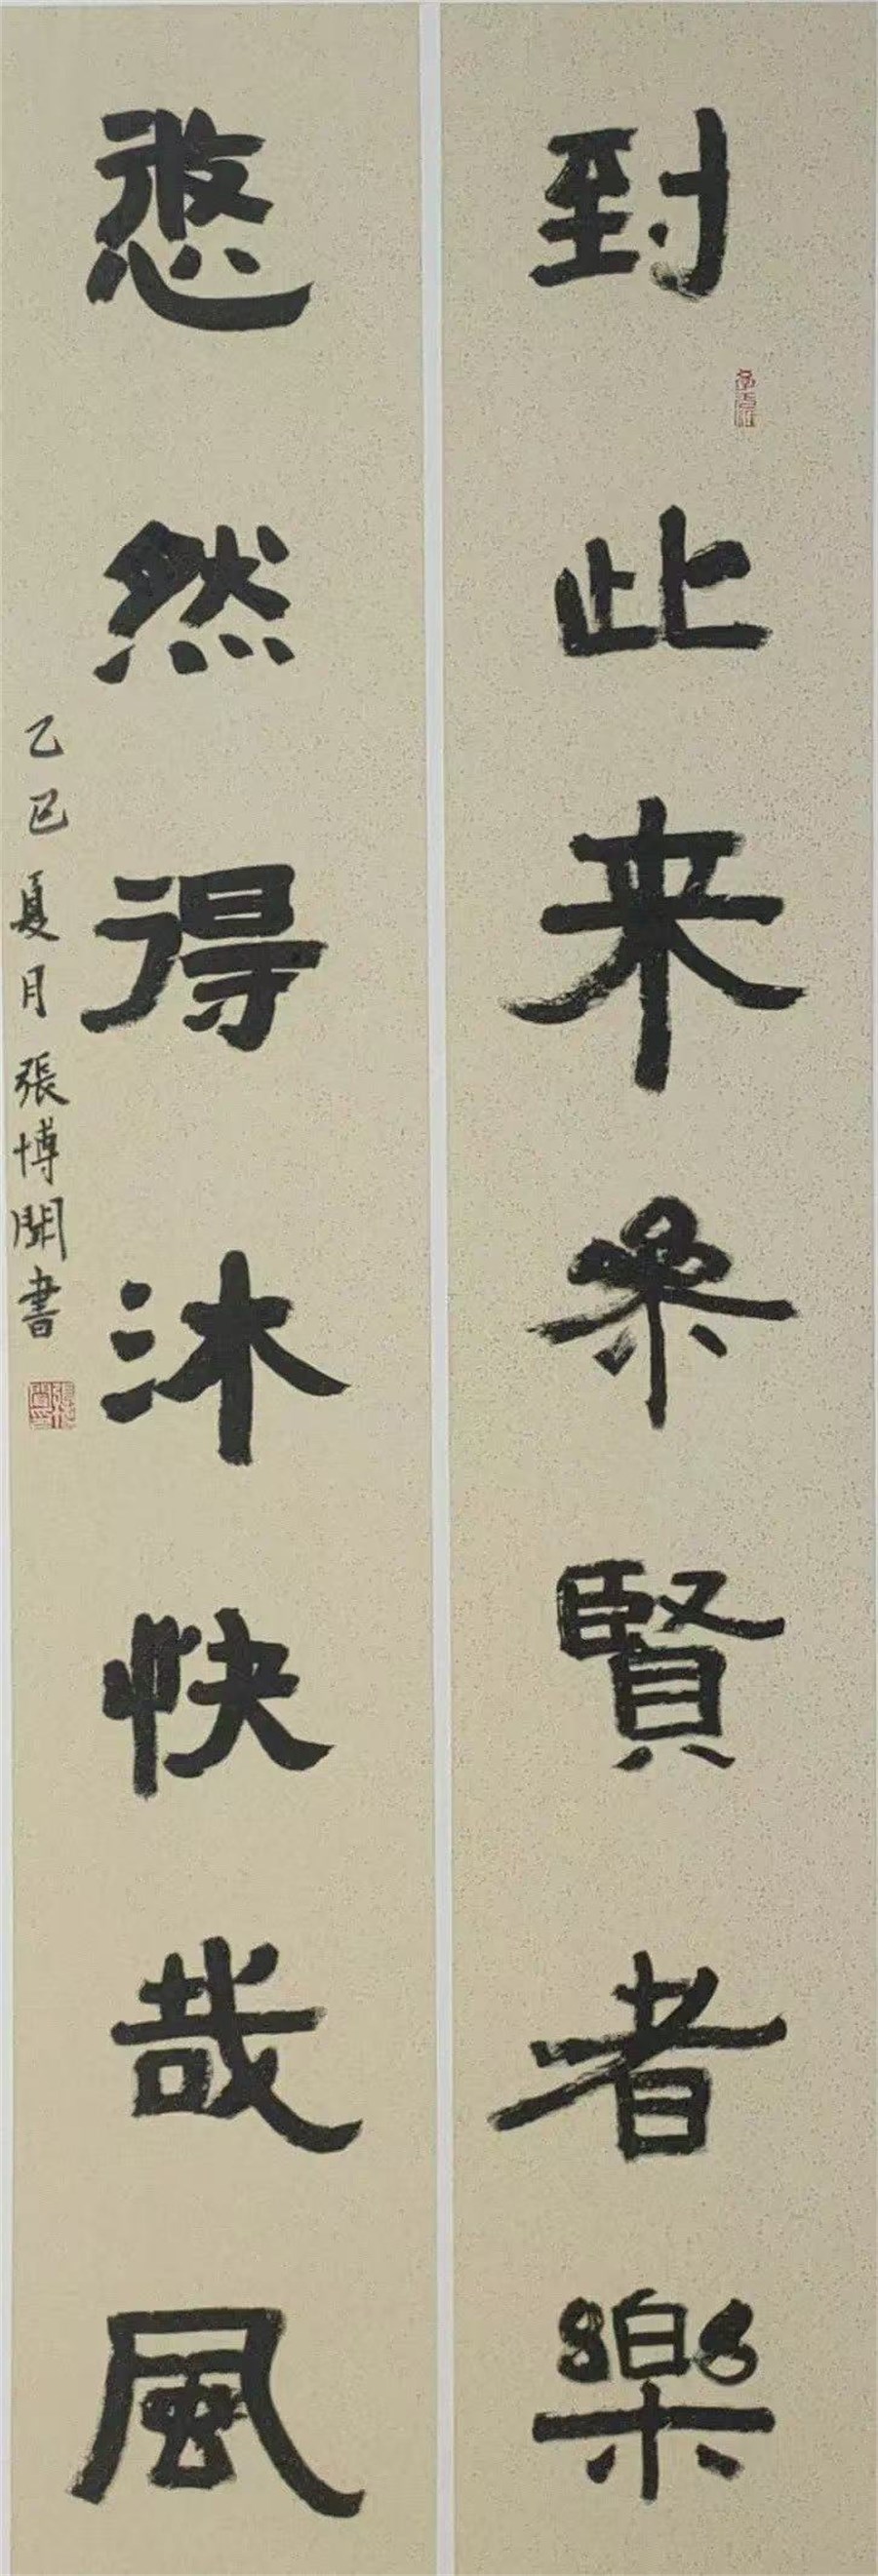 到此来叅賢者樂
悠然得沐快哉風
乙巳夏月張博聞書